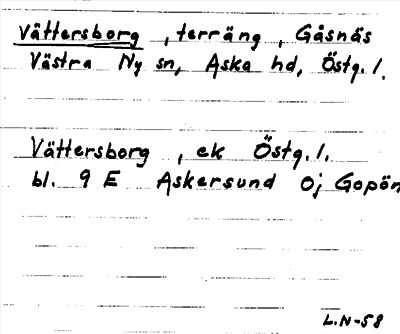 Vättersborg , terräng , Gåsnäs
Västra Ny sn, Aska hd, Östg. l.
Vättersborg , ek Östg. l.
bl. 9 E Askersund 0j Gopön
L.N-58